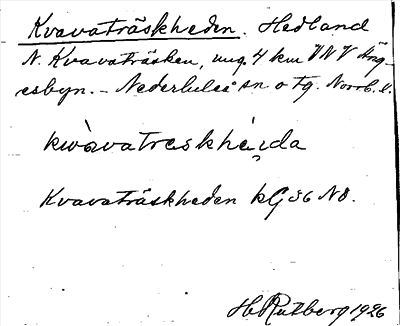 Kvavaträskheden. Hedland
N. Kvavaträsken, ung. 4 km VNV Äng-
esbyn. - Nederluleå sn o tg. Norrb. l.
kwàvatraskhė́ida
Kvavaträskheden kG36 NO.
H Rutberg 1926